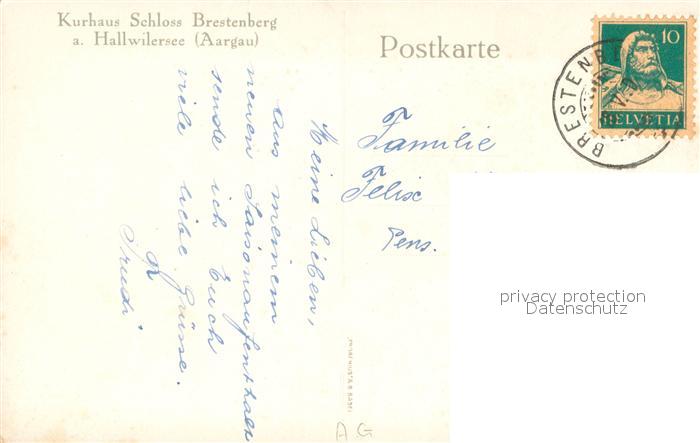 Kurhaus Schloss Brestenberg
a. Hallwilersee (Aargau)
Postkarte
10
HELVETIA
BRESTENB
Familie
Felix
Pens.
privacy protection
Datenschutz
Meine Lieben,
Aus meinem
neuen Saisonaufenthalt
sende ich Euch
viele liebe Grüsse.
Trudi
AG